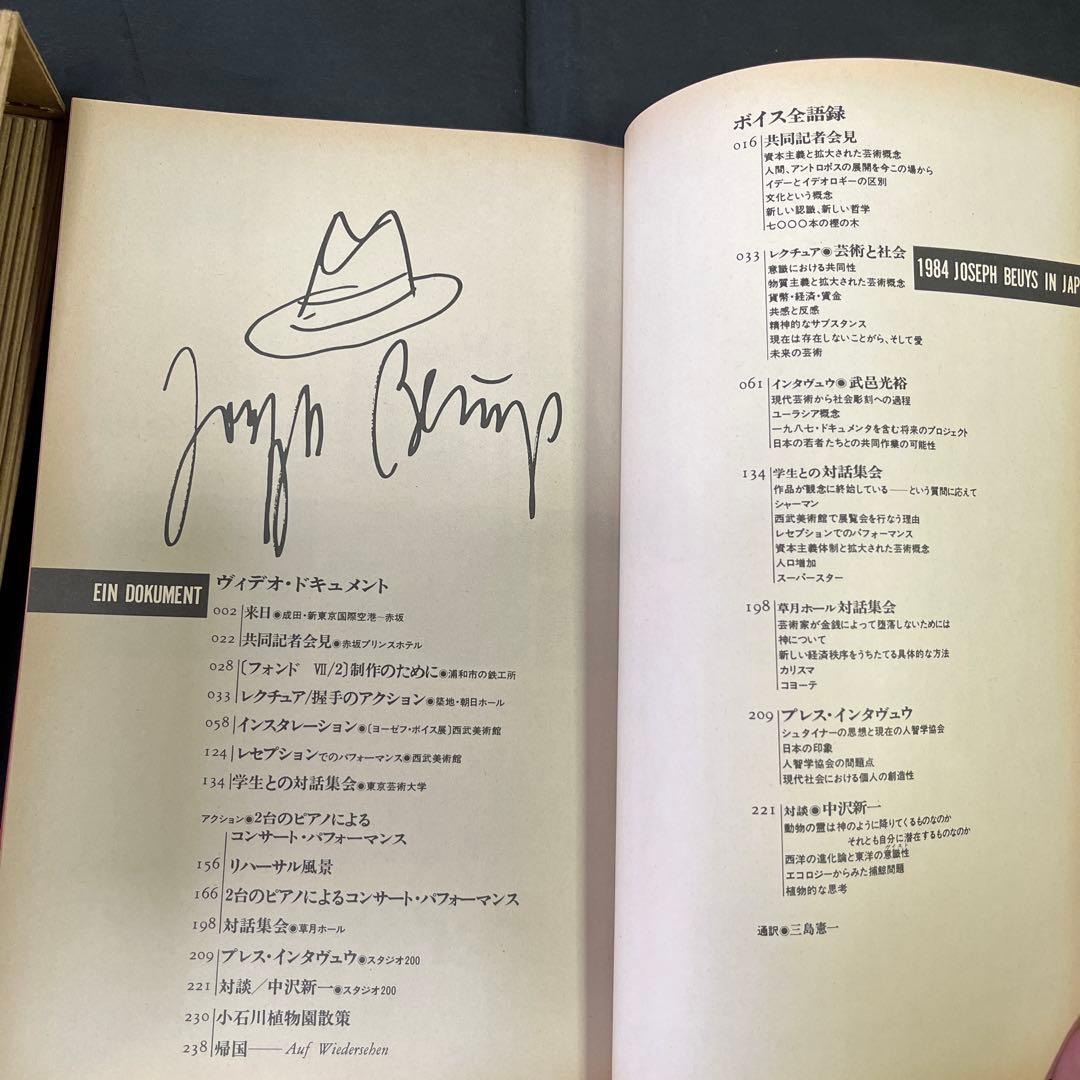 Joseph Beuys
EIN DOKUMENT
ヴィデオ・ドキュメント
002 来日◉成田・新東京国際空港―赤坂
022 共同記者会見◉赤坂プリンスホテル
028 〔フォンド VII/2〕制作のために◉浦和市の鉄工所
033 レクチュア/握手のアクション◉築地・朝日ホール
058 インスタレーション◉〔ヨーゼフ・ボイス展〕西武美術館
124 レセプションでのパフォーマンス◉西武美術館
134 学生との対話集会◉東京芸術大学
アクション◉2台のピアノによる
コンサート・パフォーマンス
156 リハーサル風景
166 2台のピアノによるコンサート・パフォーマンス
198 対話集会◉草月ホール
209 プレス・インタヴュウ◉スタジオ200
221 対談／中沢新一◉スタジオ200
230 小石川植物園散策
238 帰国――Auf Wiedersehen
ボイス全語録
016 共同記者会見
資本主義と拡大された芸術概念
人間、アントロポスの展開を今この場から
イデーとイデオロギーの区別
文化という概念
新しい認識、新しい哲学
七〇〇〇本の樫の木
033 レクチュア◉芸術と社会
意識における共同性
物質主義と拡大された芸術概念
貨幣・経済・賃金
共感と反感
精神的なサブスタンス
現在は存在しないことがら、そして愛
未来の芸術
1984 JOSEPH BEUYS IN JAP
061 インタヴュウ◉武邑光裕
現代芸術から社会彫刻への過程
ユーラシア概念
一九八七・ドキュメンタを含む将来のプロジェクト
日本の若者たちとの共同作業の可能性
134 学生との対話集会
作品が観念に終始している――という質問に応えて
シャーマン
西武美術館で展覧会を行なう理由
レセプションでのパフォーマンス
資本主義体制と拡大された芸術概念
人口増加
スーパースター
198 草月ホール対話集会
芸術家が金銭によって堕落しないためには
神について
新しい経済秩序をうちたてる具体的な方法
カリスマ
コヨーテ
209 プレス・インタヴュウ
シュタイナーの思想と現在の人智学協会
日本の印象
人智学協会の問題点
現代社会における個人の創造性
221 対談◉中沢新一
動物の霊は神のように降りてくるものなのか
それとも自分に潜在するものなのか
西洋の進化論と東洋の意識性
エコロジーからみた捕鯨問題
植物的な思考
通訳◉三島憲一